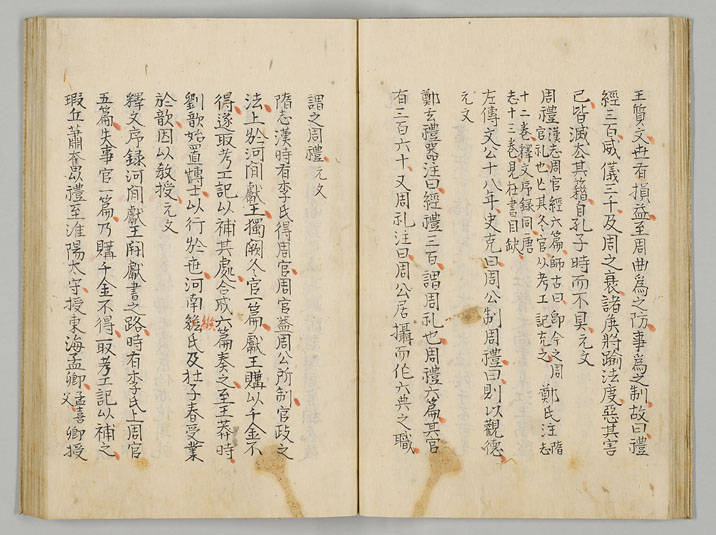 王質文世有損益至周曲為之防事為之制故曰禮
經三百威儀三千及周之衰諸侯將踰法度惡其害
已皆滅去其籍自孔子時而不具元文
周禮漢志周官經六篇師古曰即今之周
官礼也亡其冬官以考工記充之鄭氏注隋志
十二卷釋文序録同唐
志十三卷見杜書目缺
左傳文公十八年史克曰周公制周禮曰則以觀德
元文
鄭玄禮器注曰經禮三百謂周礼也周禮六篇其官
有三百六十又周礼注曰周公居攝而作六典之職
謂之周禮元文
隋志漢時有李氏得周官周官蓋周公所制官政之
法上於河間獻王獨闕冬官一篇獻王購以千金不
得遂取考工記以補其處合成六篇奏之至王莽時
劉歆始置博士以行於世河南緱氏及杜子春受業
於歆因以教授元文
釋文序録河間獻王開獻書之路時有李氏上周官
五篇失事官一篇乃購千金不得取考工記以補之
瑕丘蕭奮以禮至淮陽太守授東海孟卿孟喜卿授
父